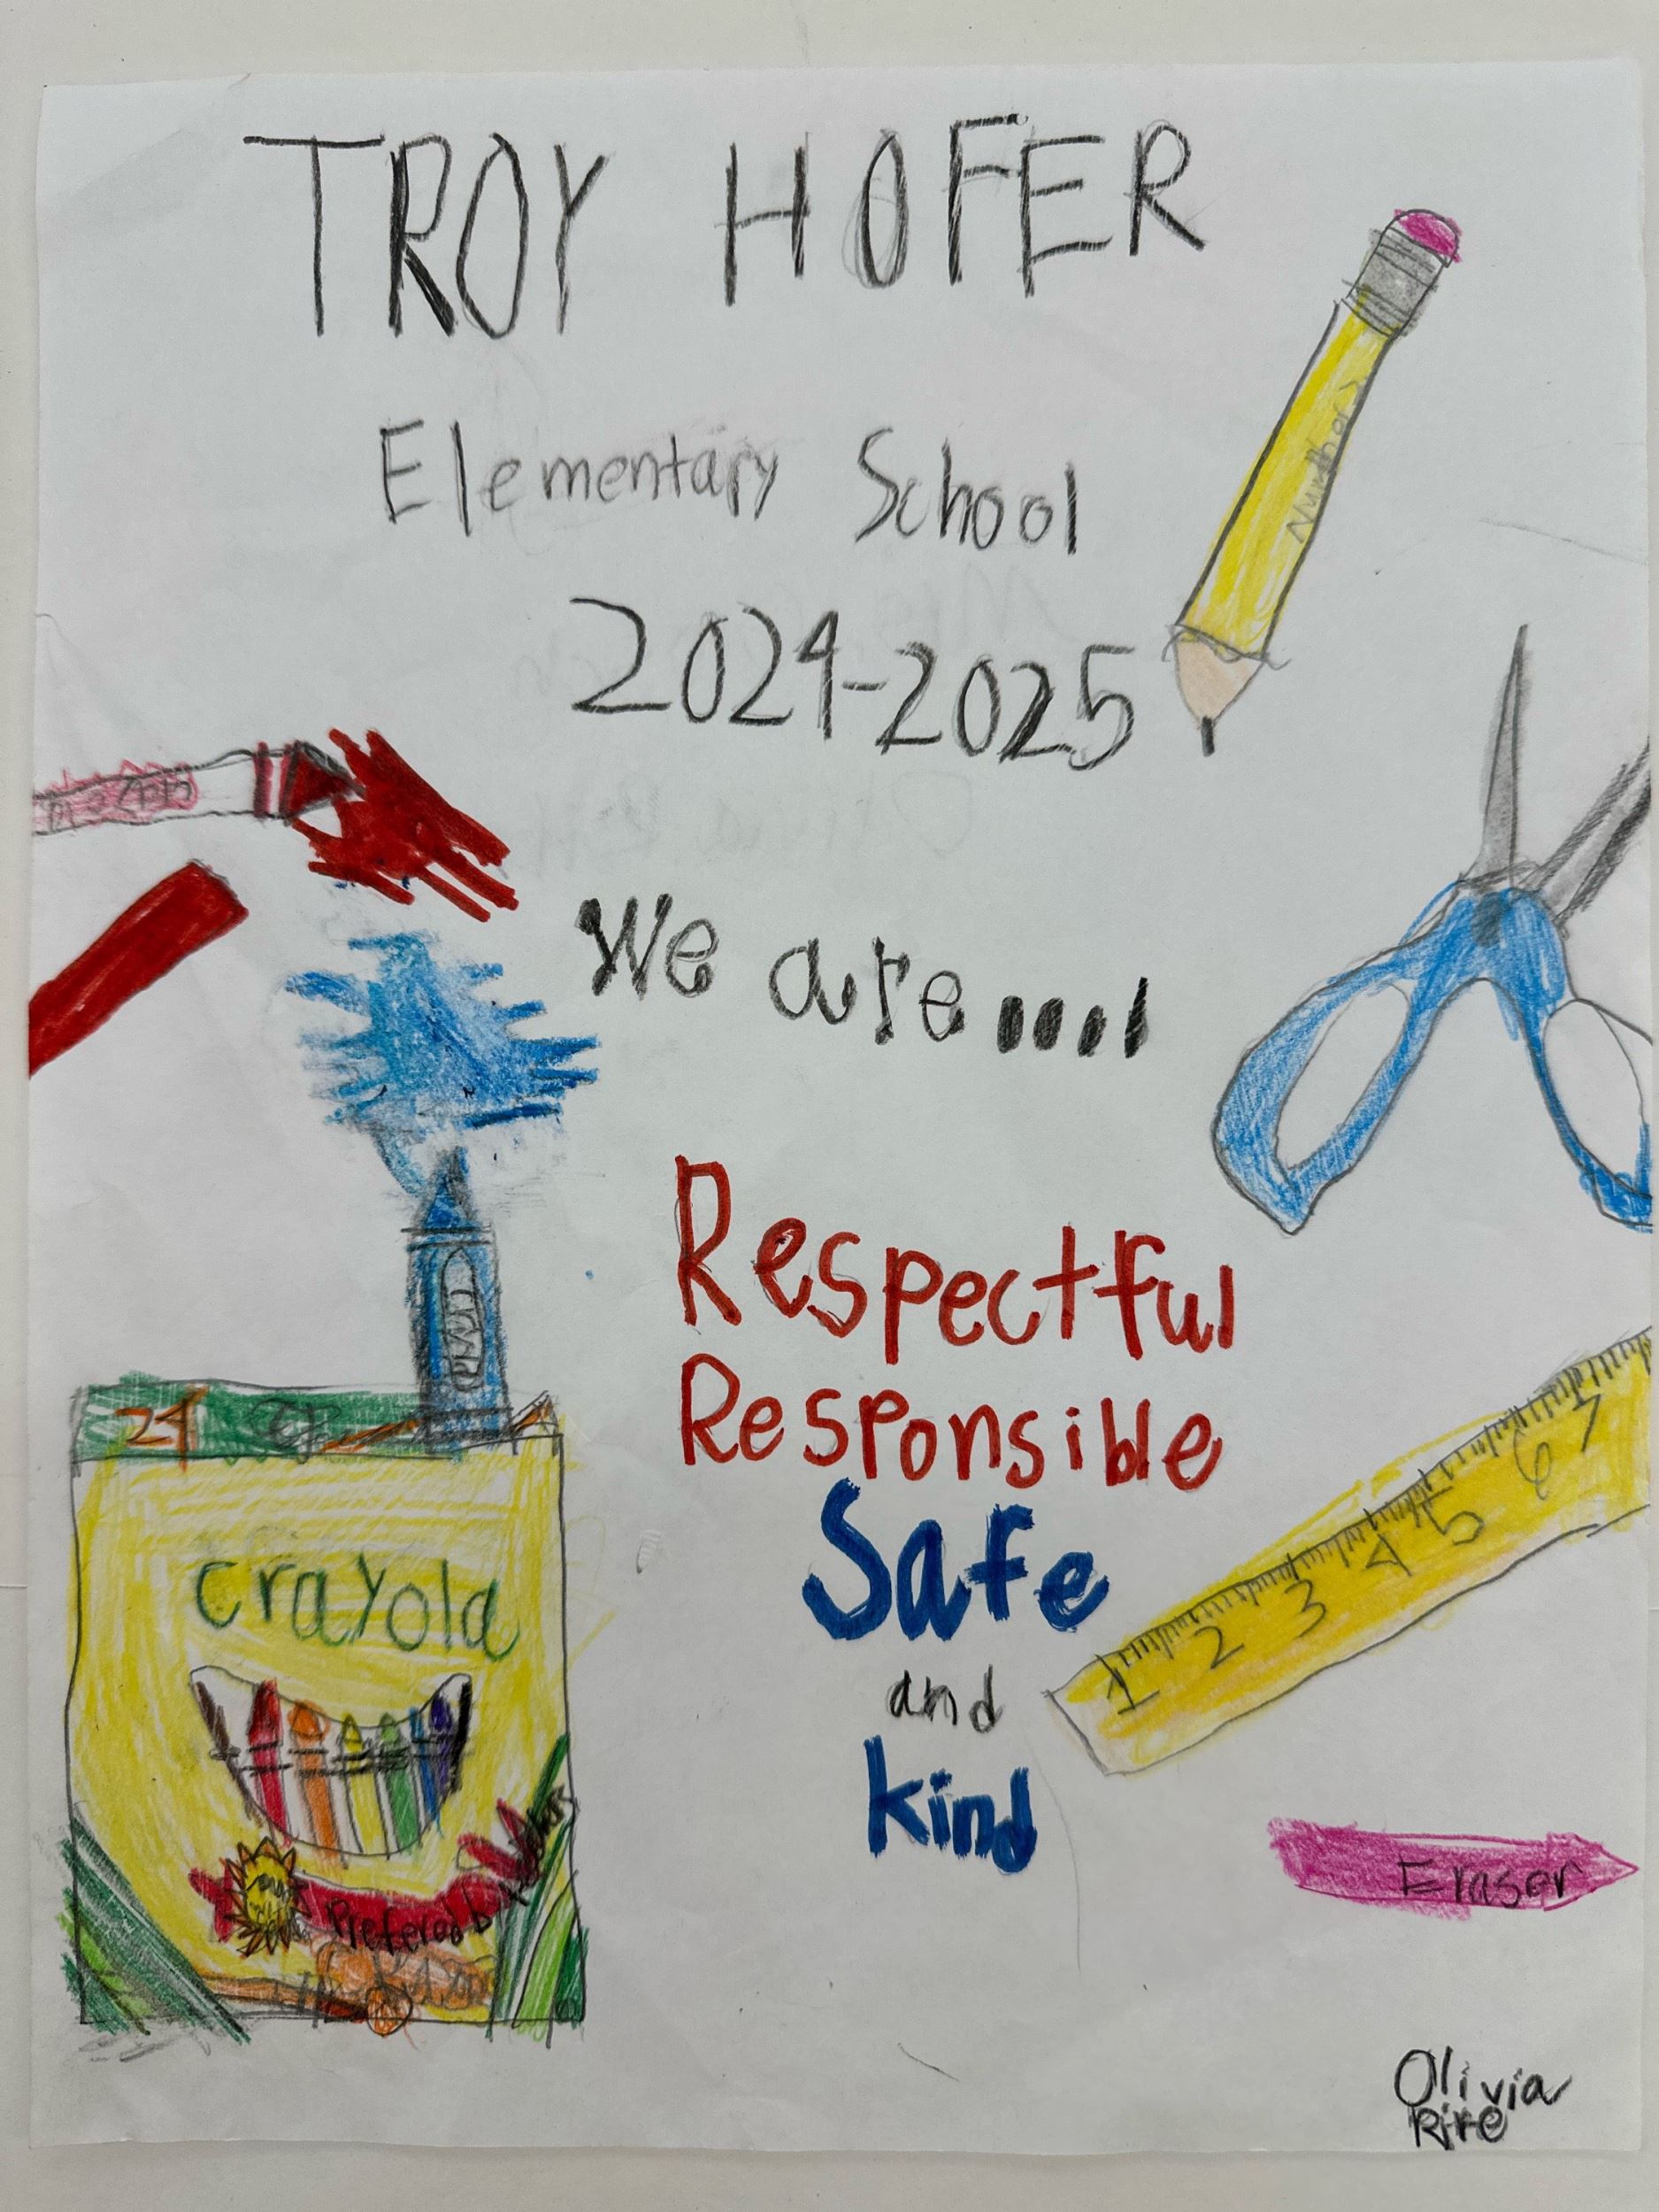 TROY HOFER
Elementary School
2024-2025
Number 2
We are....
Respectful
Responsible
Safe
and
kind
24
crayola
Prefered b
1 2 3 4 5 6 7
Eraser
Olivia